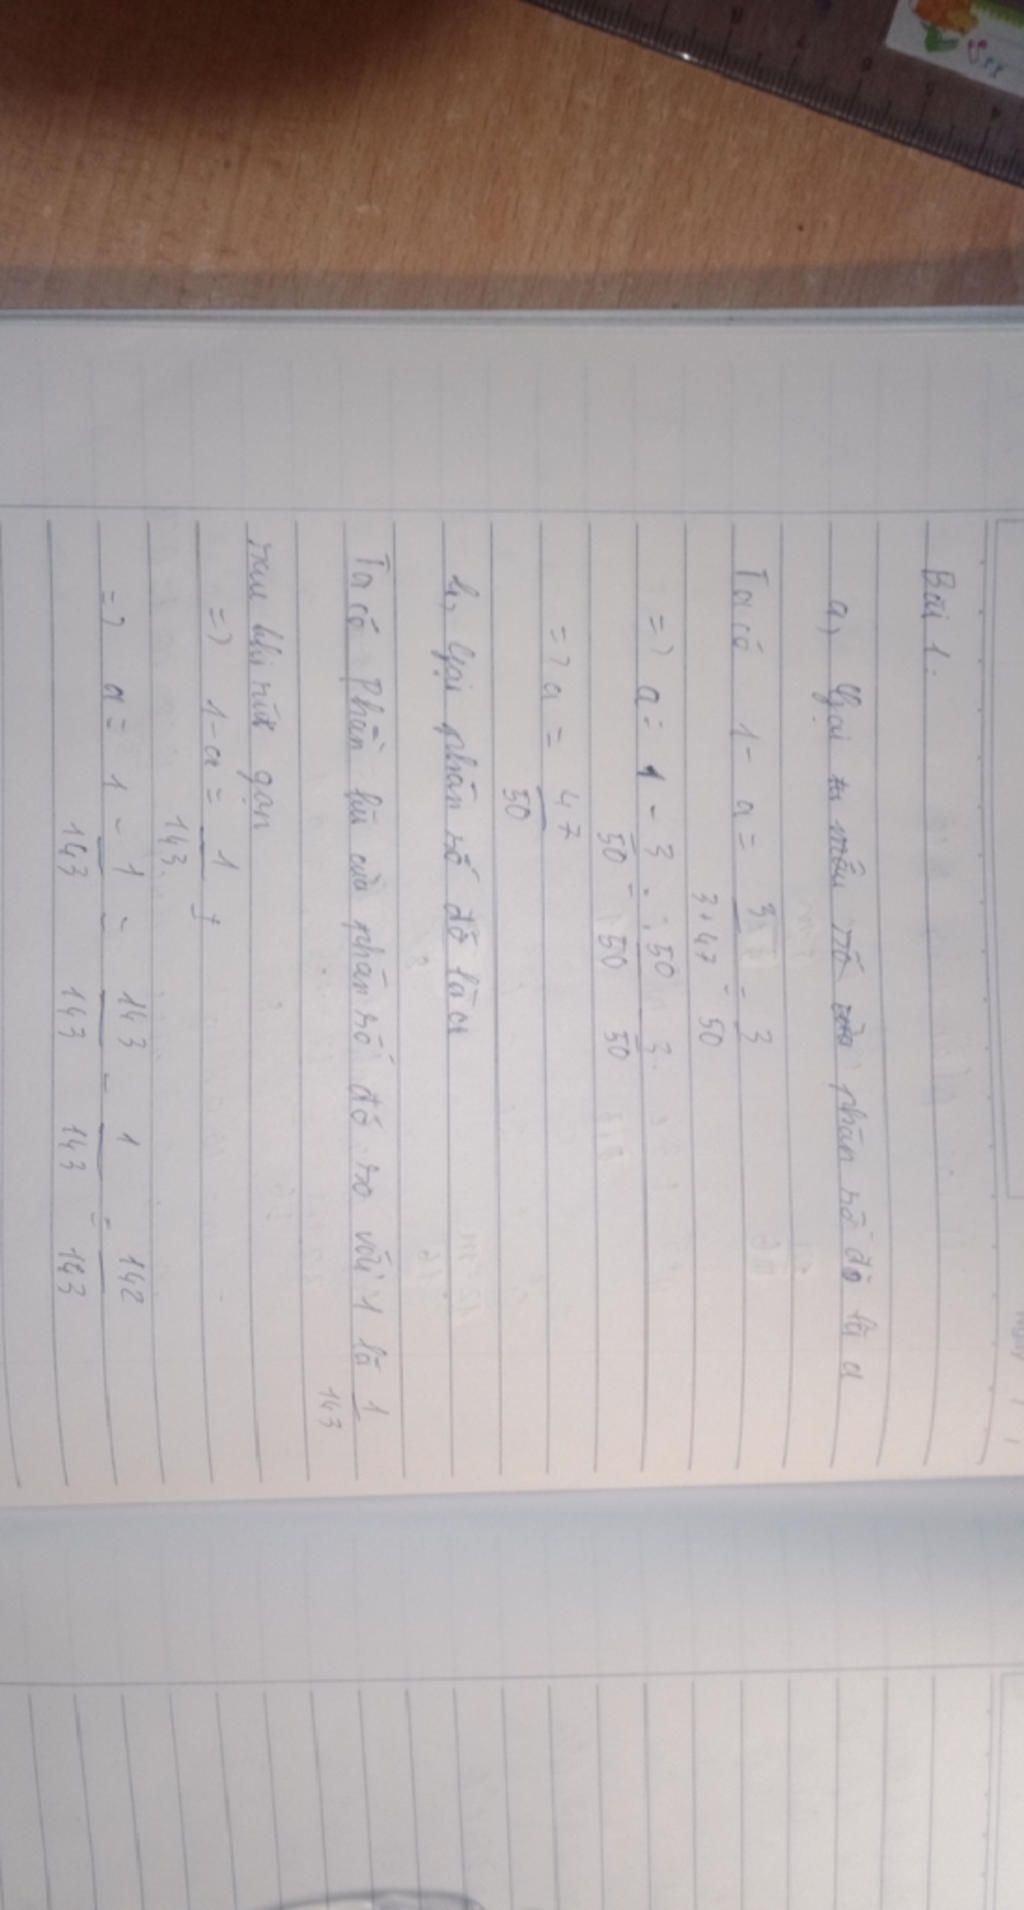 Bài 1.
a, Gọi mẫu số phân số đó là a
Ta có 1 - a = 3/3+47 = 3/50
=> a = 1 - 3/50 = 50/50 - 3/50
=> a = 47/50
b, Gọi phân số đó là a
Ta có Phần bù của phân số đó so với 1 là 1/143
sau khi rút gọn
=> 1-a = 1/143
=> a = 1 - 1/143 = 143/143 - 1/143 = 142/143